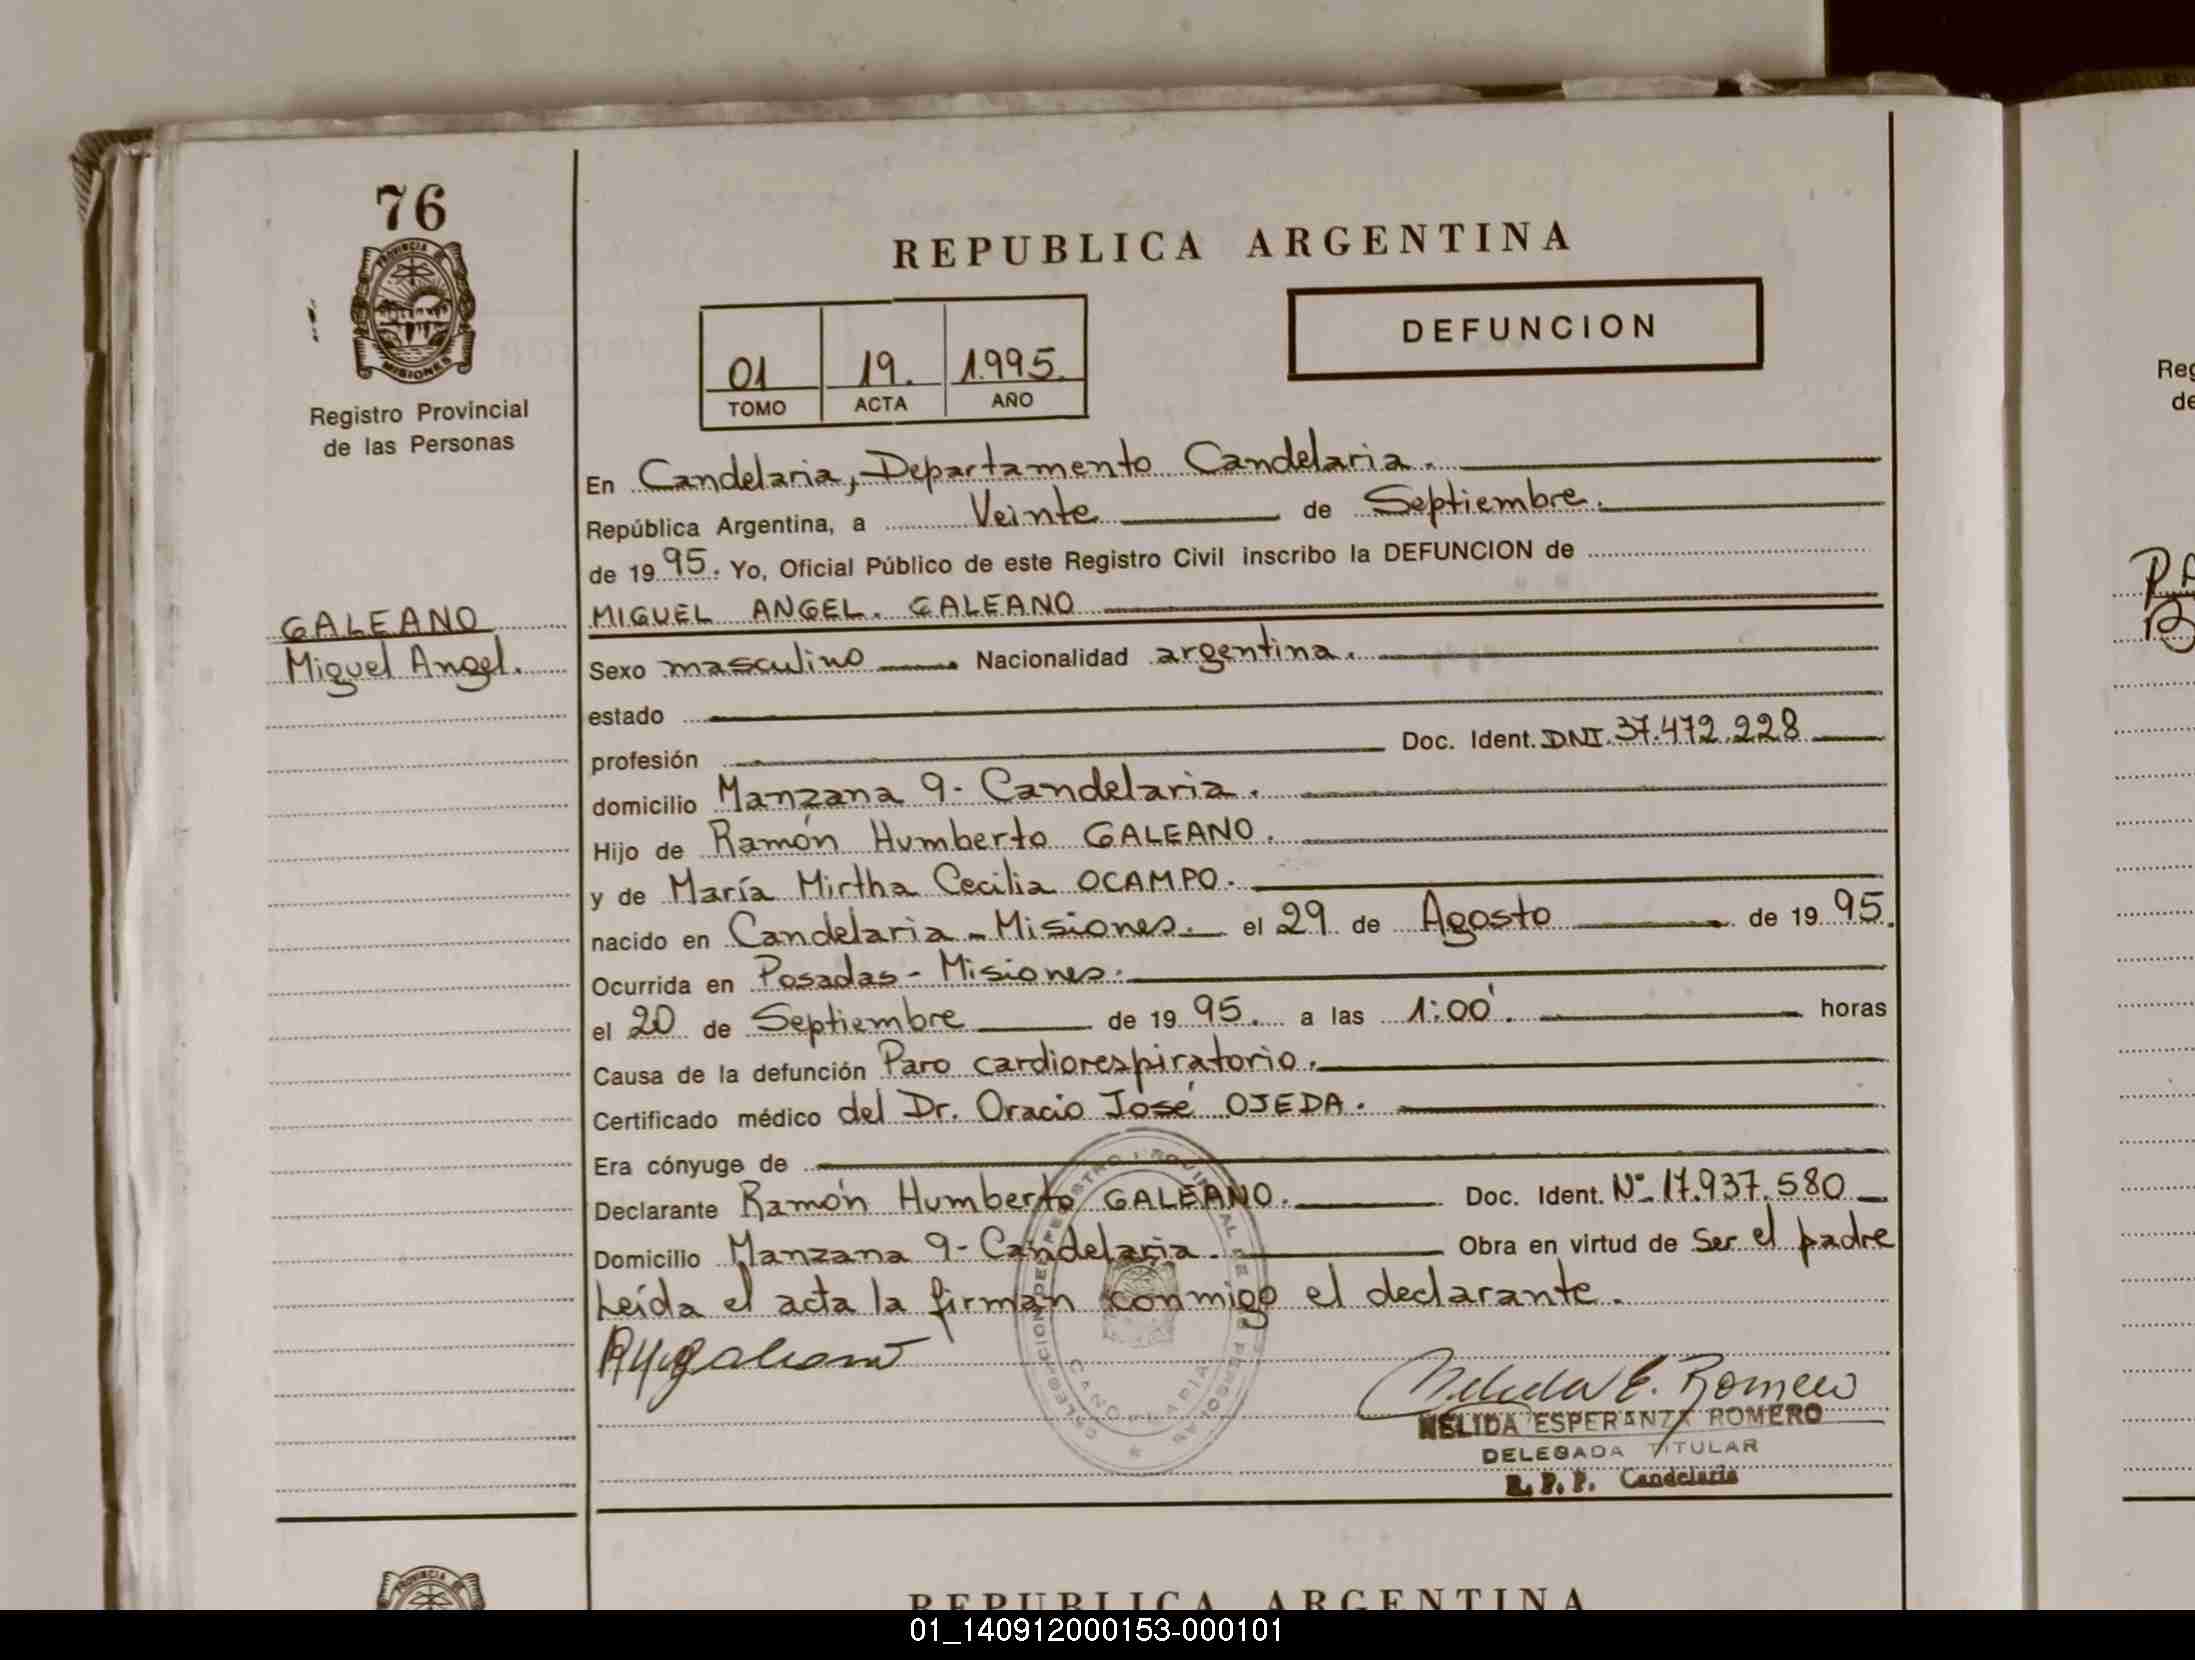 76
PROVINCIA DE
MISIONES
Registro Provincial
de las Personas
GALEANO
Miguel Angel.
REPUBLICA ARGENTINA
01 19. 1.995.
TOMO ACTA AÑO
DEFUNCION
En Candelaria, Departamento Candelaria.
República Argentina, a Veinte de Septiembre.
de 19 95. Yo, Oficial Público de este Registro Civil inscribo la DEFUNCION de
MIGUEL ANGEL. GALEANO
Sexo masculino Nacionalidad argentina.
estado
profesión Doc. Ident. DNI. 37.472.228
domicilio Manzana 9- Candelaria.
Hijo de Ramón Humberto GALEANO.
y de María Mirtha Cecilia OCAMPO.
nacido en Candelaria - Misiones. el 29 de Agosto de 19 95.
Ocurrida en Posadas - Misiones.
el 20 de Septiembre de 19 95. a las 1:00'. horas
Causa de la defunción Paro cardiorespiratorio.
Certificado médico del Dr. Oracio José OJEDA.
Era cónyuge de
Declarante Ramón Humberto GALEANO. Doc. Ident. Nº 17.937.580
Domicilio Manzana 9- Candelaria. Obra en virtud de ser el padre
Leída el acta la firman conmigo el declarante.
Nelida E. Romero
NELIDA ESPERANZA ROMERO
DELEGADA TITULAR
R. P. P. Candelaria
CANDELARIA
PROVINCIA DE
REPUBLICA ARGENTINA
Reg
de
01_140912000153-000101